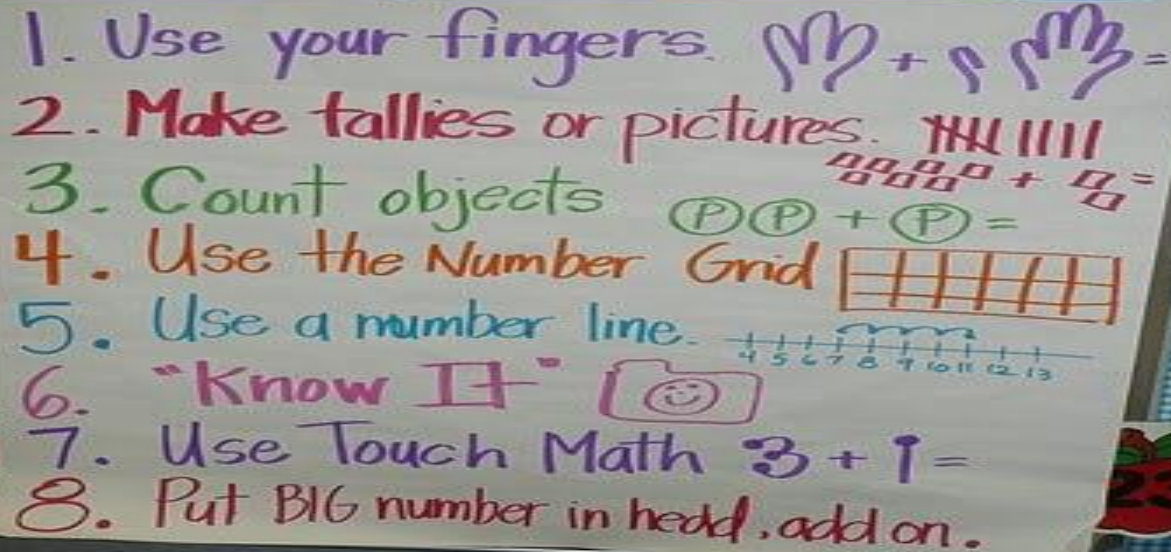 1. Use your fingers. + =
2. Make tallies or pictures.
+ =
3. Count objects P P + P =
4. Use the Number Grid
5. Use a number line.
4 5 6 7 8 9 10 11 12 13
6. "Know It"
7. Use Touch Math 3 + 1 =
8. Put BIG number in head, add on.
23